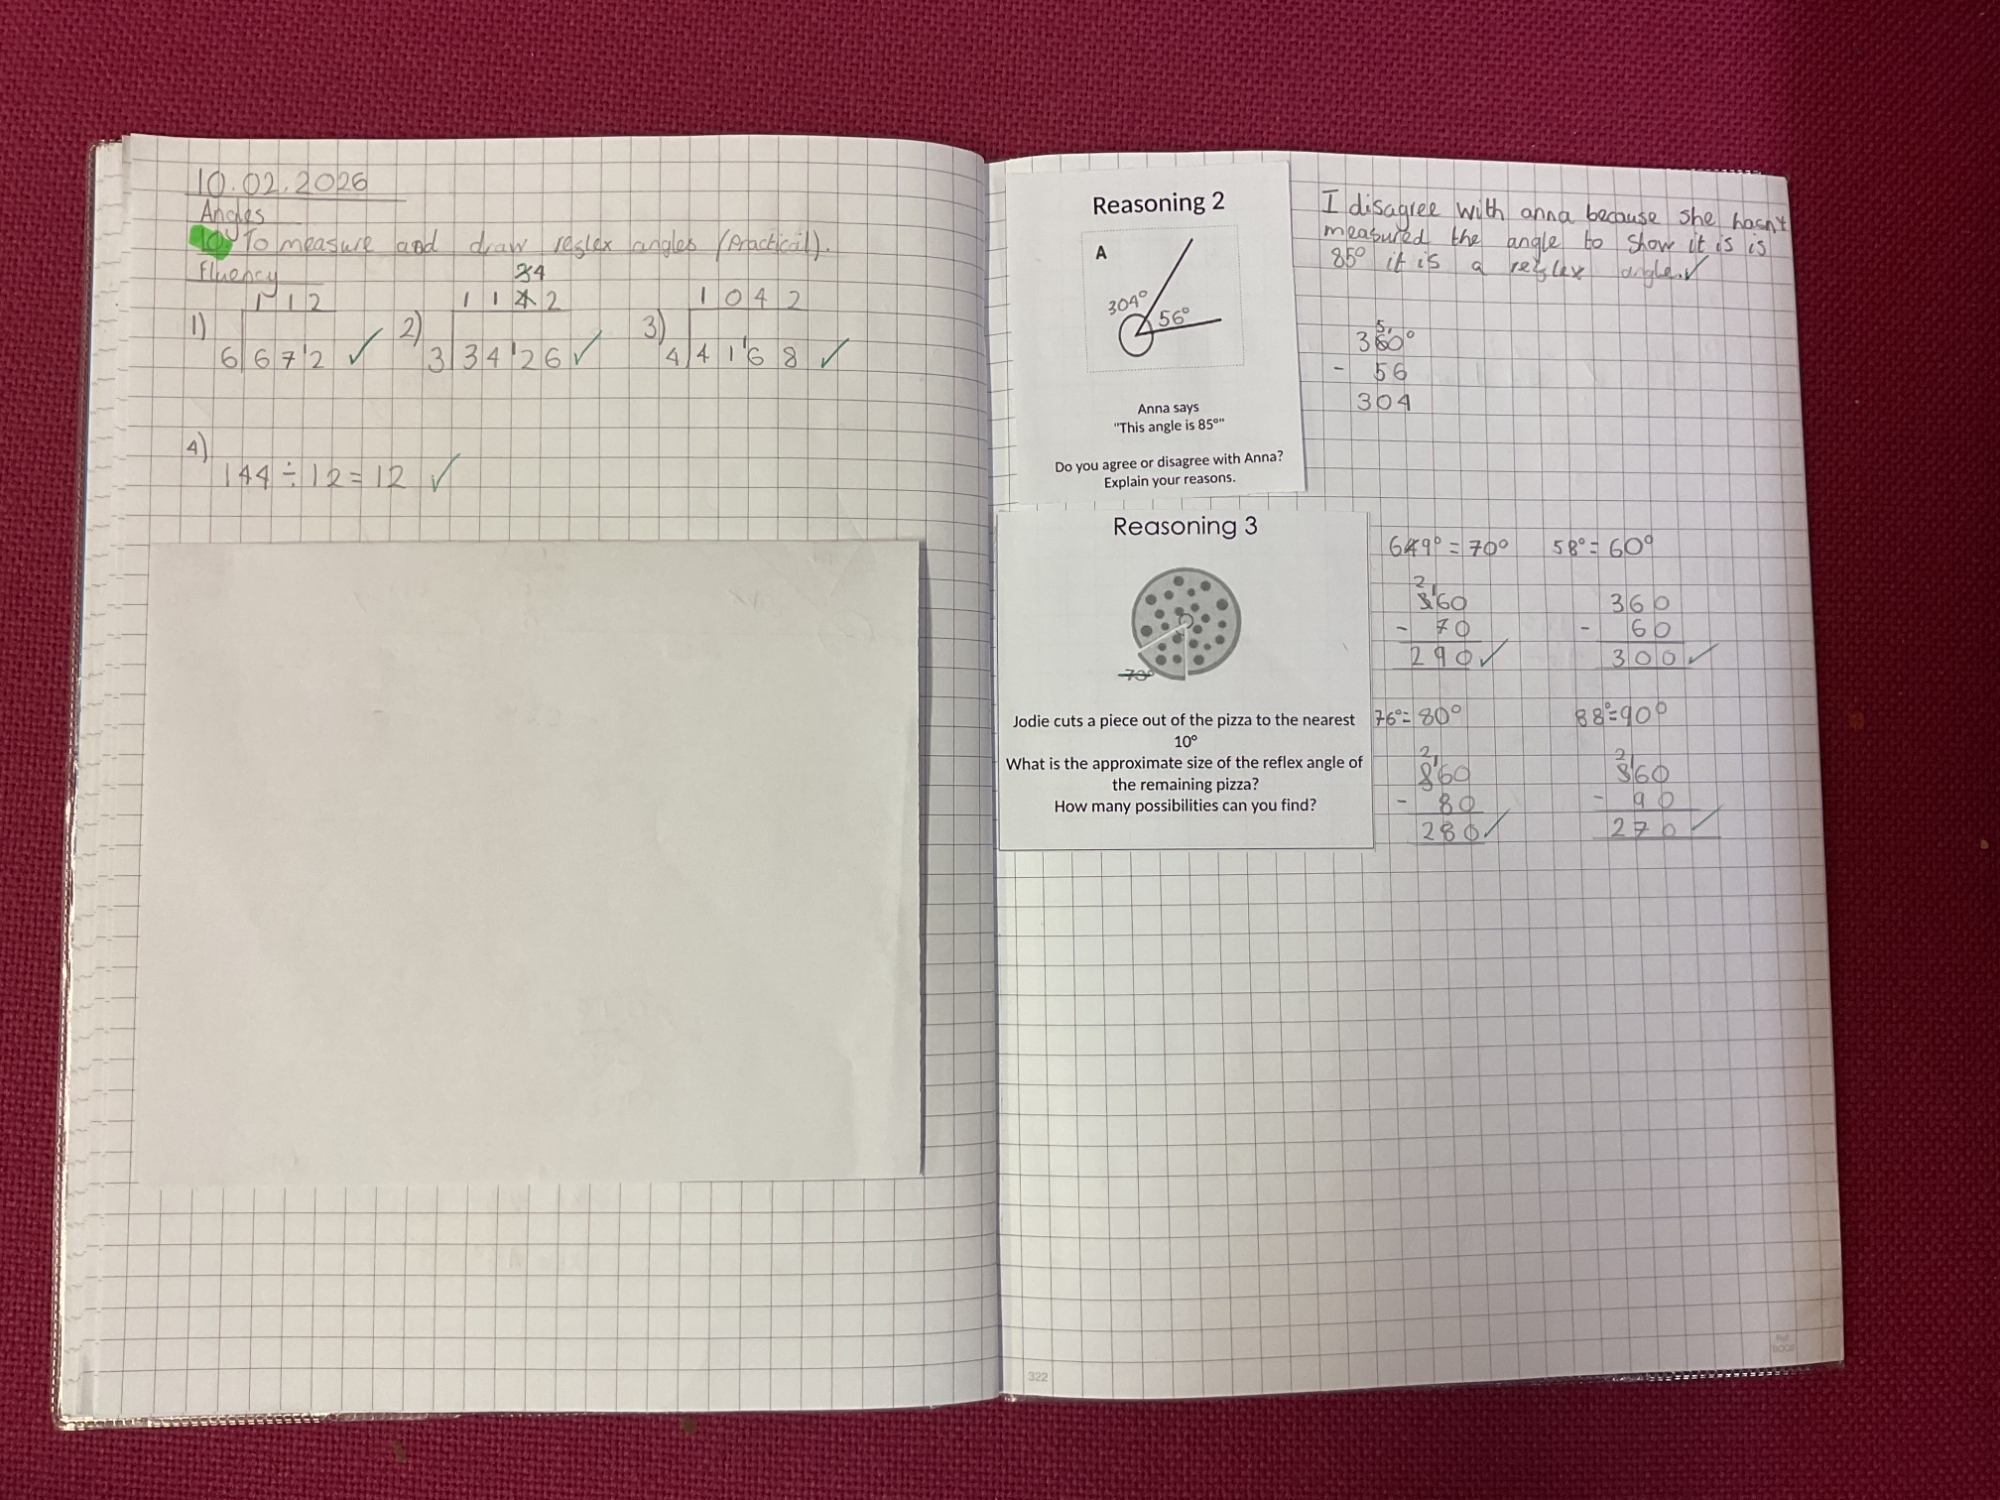 10.02.2026
Angles
LO: To measure and draw reflex angles (Practical).
Fluency
34
1 1 2
1) 6 6 7 '2 ✓
1 1 4 2
2) 3 3 4 '2 6 ✓
1 0 4 2
3) 4 4 1 '6 8 ✓
4)
144 ÷ 12 = 12 ✓
Reasoning 2
A
304°
56°
Anna says
"This angle is 85°"
Do you agree or disagree with Anna?
Explain your reasons.
I disagree with anna because she hasn't
measured the angle to show it is is
85° it is a reflex angle. ✓
5 1
360°
- 56
304
Reasoning 3
70°
Jodie cuts a piece out of the pizza to the nearest
10°
What is the approximate size of the reflex angle of
the remaining pizza?
How many possibilities can you find?
649° = 70° 58° = 60°
2 1
360
- 70
290 ✓
360
- 60
300 ✓
76° = 80° 88° = 90°
2 1
360
- 80
280 ✓
2 1
360
- 90
270 ✓
322